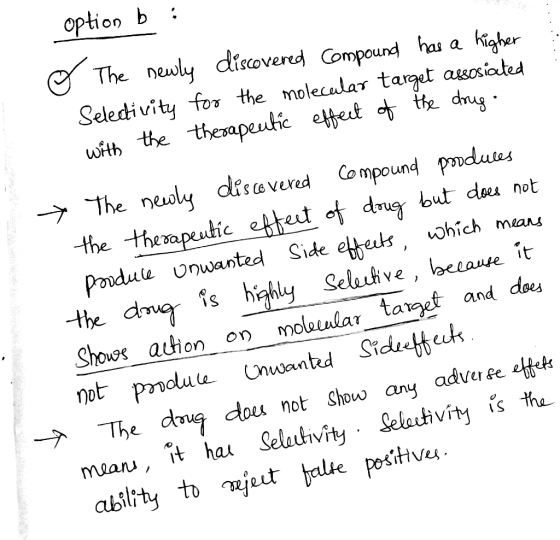 option b :
The newly discovered Compound has a higher
Selectivity for the molecular target assosiated
with the therapeutic effect of the drug.
→ The newly discovered Compound produces
the therapeutic effect of drug but does not
produce Unwanted Side effects, which means
the drug is highly Selective, because it
Shows action on molecular target and does
not produce Unwanted Sideeffects.
→ The drug does not show any adverse effets
means, it has Selectivity. Selectivity is the
ability to reject false positives.